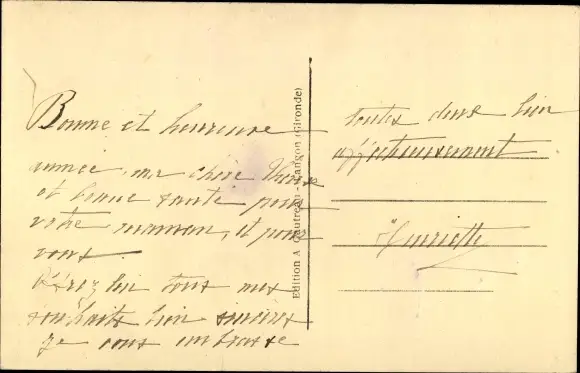 Bonne et heureuse
année ma chère
et bonne santé pour
votre maman, et pour
vous.
bien tous mes
souhaits bien sincères
je vous embrasse
toutes deux bien
affectueusement
Henriette
Edition A. Gautreau - Langon (Gironde)